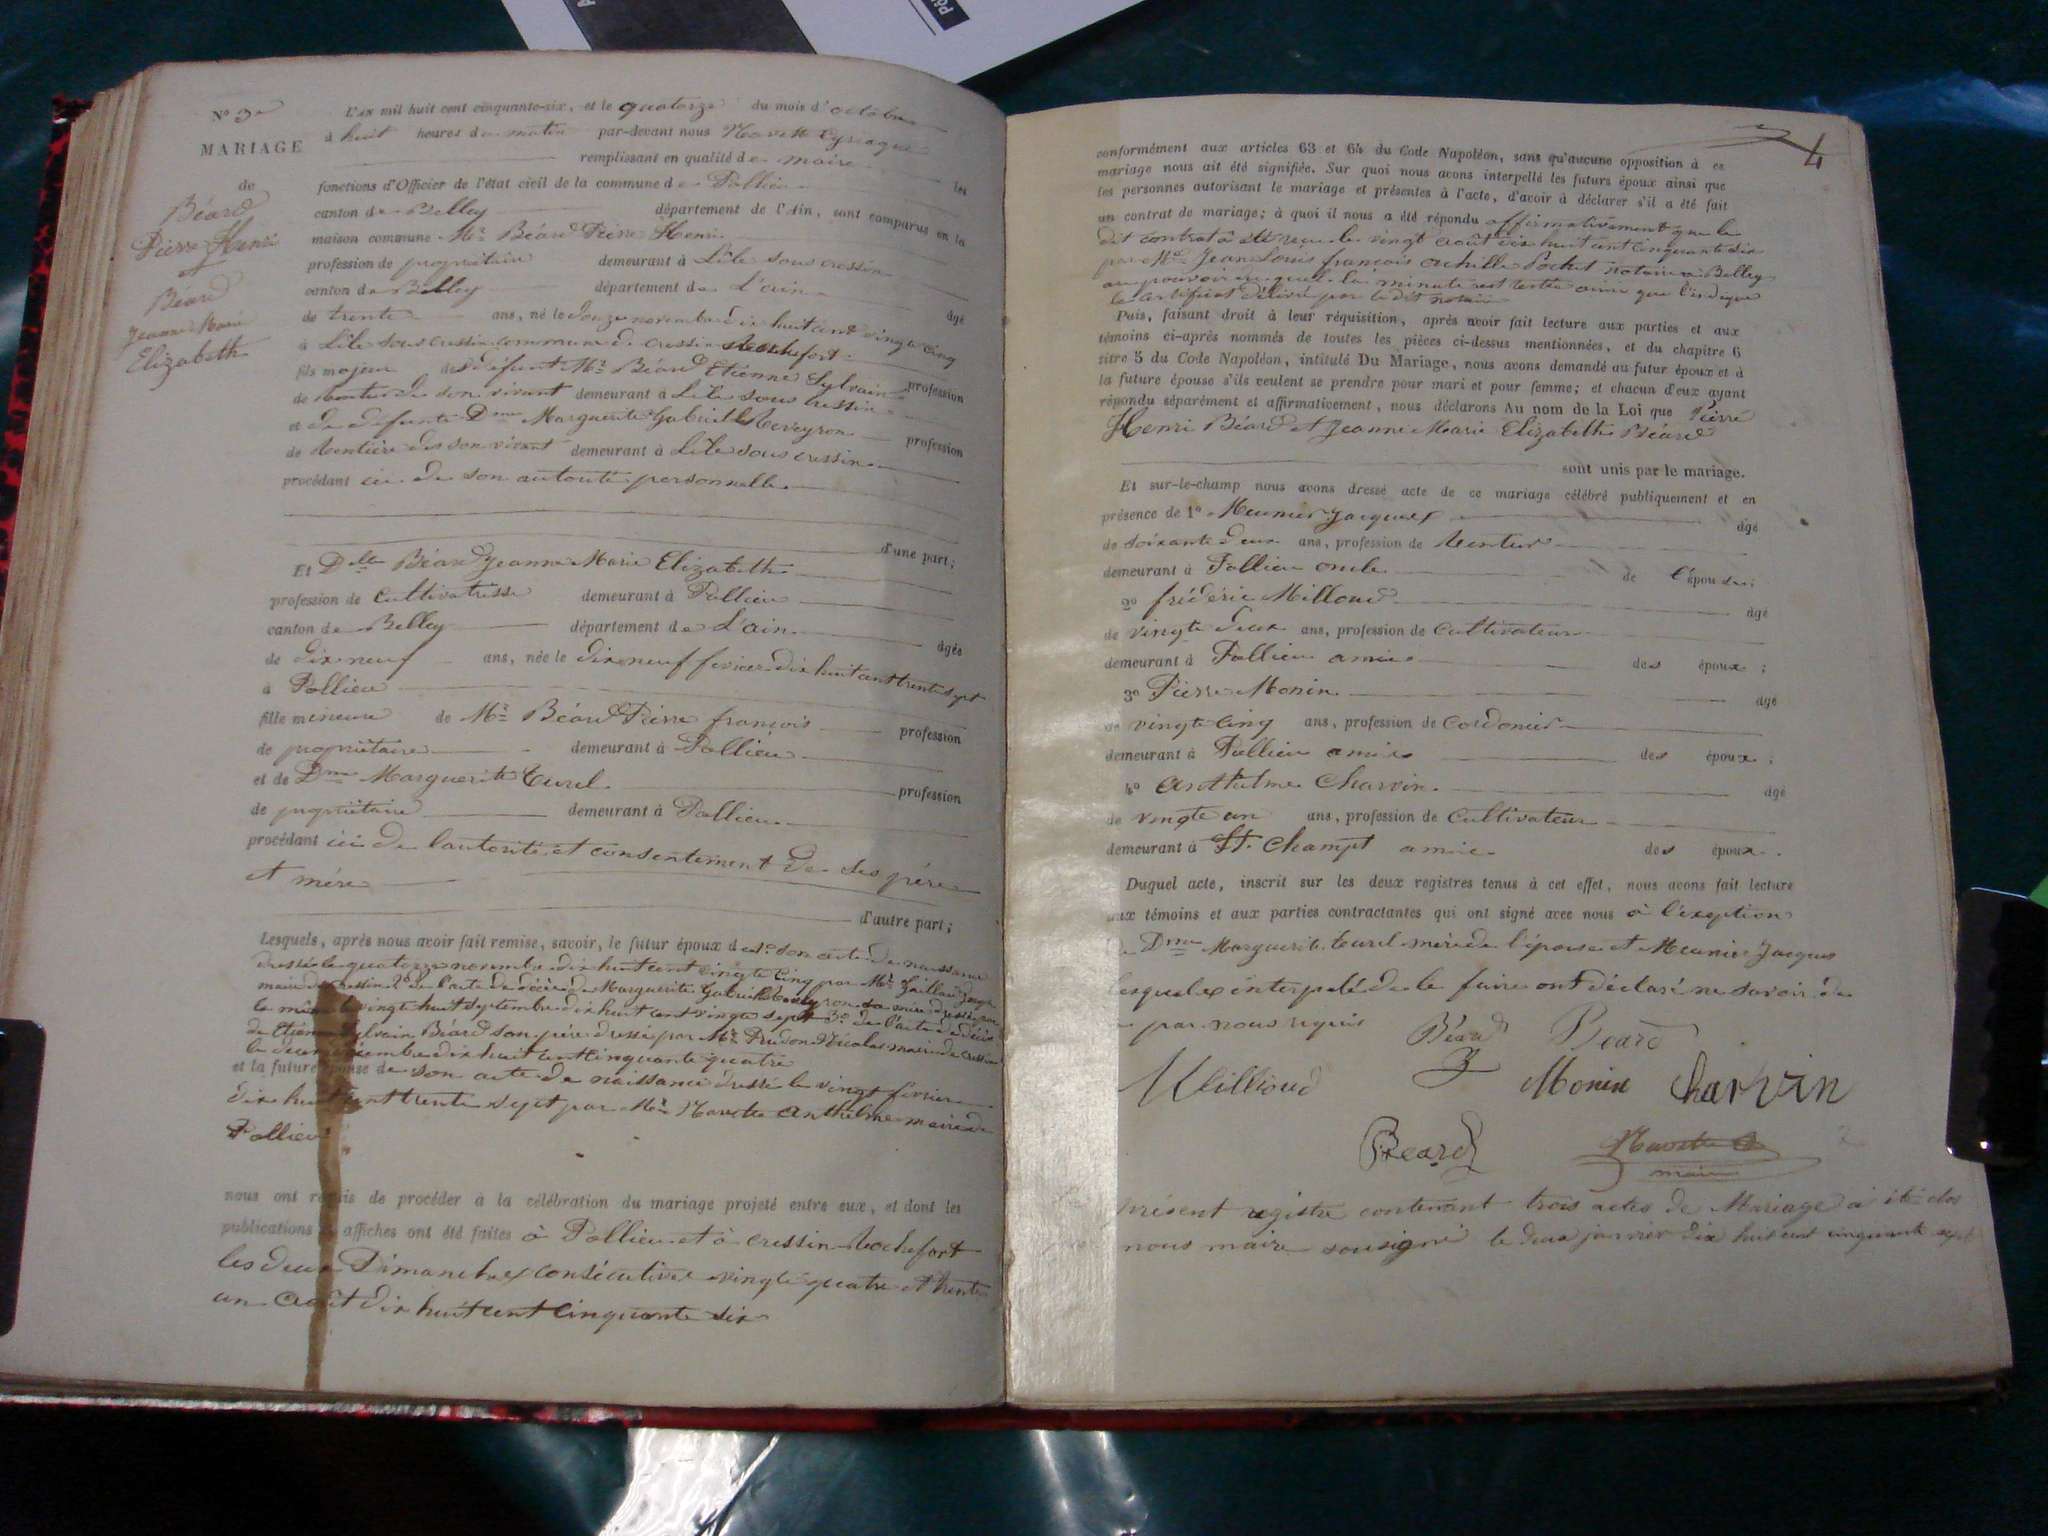 N° 3e
MARIAGE
de
Béard
Pierre Henri
Béard
Jeanne Marie
Elizabeth
L'AN mil huit cent cinquante-six, et le quatorze du mois d'octobre
à huit heures de matin par-devant nous Cyriaque
remplissant en qualité de maire les
fonctions d'Officier de l'état civil de la commune de Pollieu
canton de Belley département de l'Ain, sont comparus en la
maison commune Mr Béard Pierre Henri
profession de propriétaire demeurant à L'île sous cressin
canton de Belley département de L'ain âgé
de trente ans, né le douze novembre dix huit cent vingt cinq
à L'île sous cressin commune de cressin Rochefort
fils majeur de défunt Mr Béard Etienne Sylvain profession
de rentier de son vivant demeurant à L'île sous cressin
et de défunte Dme Marguerite Gabrielle Reveyron profession
de Rentière de son vivant demeurant à L'île sous cressin
procédant ici de son autorité personnelle
d'une part;
Et Dlle Béard Jeanne Marie Elizabeth
profession de Cultivatrisse demeurant à Pollieu
canton de Belley département de L'ain âgée
de dix neuf ans, née le dix neuf fevrier dix huit cent trente sept
à Pollieu
fille mineure de Mr Béard Pierre françois profession
de propriétaire demeurant à Pollieu
et de Dme Marguerite Turel profession
de propriétaire demeurant à Pollieu
procédant ici de l'autorité et consentement de ses père
et mère
d'autre part;
Lesquels, après nous avoir fait remise, savoir, le futur époux de 1° son acte de naissance
dressé le quatorze novembre dix huit cent vingt cinq par Mr Gaillard Joseph
maire de cressin 2° de l'acte de décès de Marguerite Gabrielle Reveyron sa mère dressé par
le même le vingt huit septembre dix huit cent vingt sept 3° de l'acte de décès
de Etienne Sylvain Béard son père dressé par Mr Prudon Nicolas maire de cressin
le deux décembre dix huit cent cinquante quatre
et la future épouse de son acte de naissance dressé le vingt fevrier
dix huit cent trente sept par Mr Anthelme maire de
Pollieu
nous ont requis de procéder à la célébration du mariage projeté entre eux, et dont les
publications et affiches ont été faites à Pollieu et à cressin Rochefort
les deux Dimanches consécutives vingt quatre et trente
un Août dix huit cent cinquante six
4
conformément aux articles 63 et 64 du Code Napoléon, sans qu'aucune opposition à ce
mariage nous ait été signifiée. Sur quoi nous avons interpellé les futurs époux ainsi que
les personnes autorisant le mariage et présentes à l'acte, d'avoir à déclarer s'il a été fait
un contrat de mariage; à quoi il nous a été répondu affirmativement que le
dit contrat à été reçu le vingt août dix huit cent cinquante six
par Me Jean Louis françois achille Pochet notaire à Belley
au pouvoir du quel la minute est restée ainsi que l'indique
le certificat délivré par le dit notaire
Puis, faisant droit à leur réquisition, après avoir fait lecture aux parties et aux
témoins ci-après nommés de toutes les pièces ci-dessus mentionnées, et du chapitre 6
titre 5 du Code Napoléon, intitulé Du Mariage, nous avons demandé au futur époux et à
la future épouse s'ils veulent se prendre pour mari et pour femme; et chacun d'eux ayant
répondu séparément et affirmativement, nous déclarons Au nom de la Loi que Pierre
Henri Béard et Jeanne Marie Elizabeth Béard
sont unis par le mariage.
Et sur-le-champ nous avons dressé acte de ce mariage célébré publiquement et en
présence de 1° Meunier Jacques âgé
de soixante deux ans, profession de Rentier
demeurant à Pollieu oncle de l'épouse;
2° fréderic Milloud âgé
de vingt deux ans, profession de Cultivateur
demeurant à Pollieu amie des époux;
3° Pierre Monin âgé
de vingt cinq ans, profession de Cordonier
demeurant à Pollieu amie des époux;
4° Anthelme Charvin âgé
de vingt un ans, profession de Cultivateur
demeurant à St. Champt amie des époux.
Duquel acte, inscrit sur les deux registres tenus à cet effet, nous avons fait lecture
aux témoins et aux parties contractantes qui ont signé avec nous à l'exeption
de Dme Marguerite Turel mère de l'épouse et Meunier Jacques
lesquels interpelé de le faire ont déclaré ne savoir de
par nous requis Béard Beard
Milloud Monin Charvin
Beard
maire
présent registre contenant trois actes de Mariage à été clos
nous maire sousigné le deux janvier dix huit cent cinquante sept